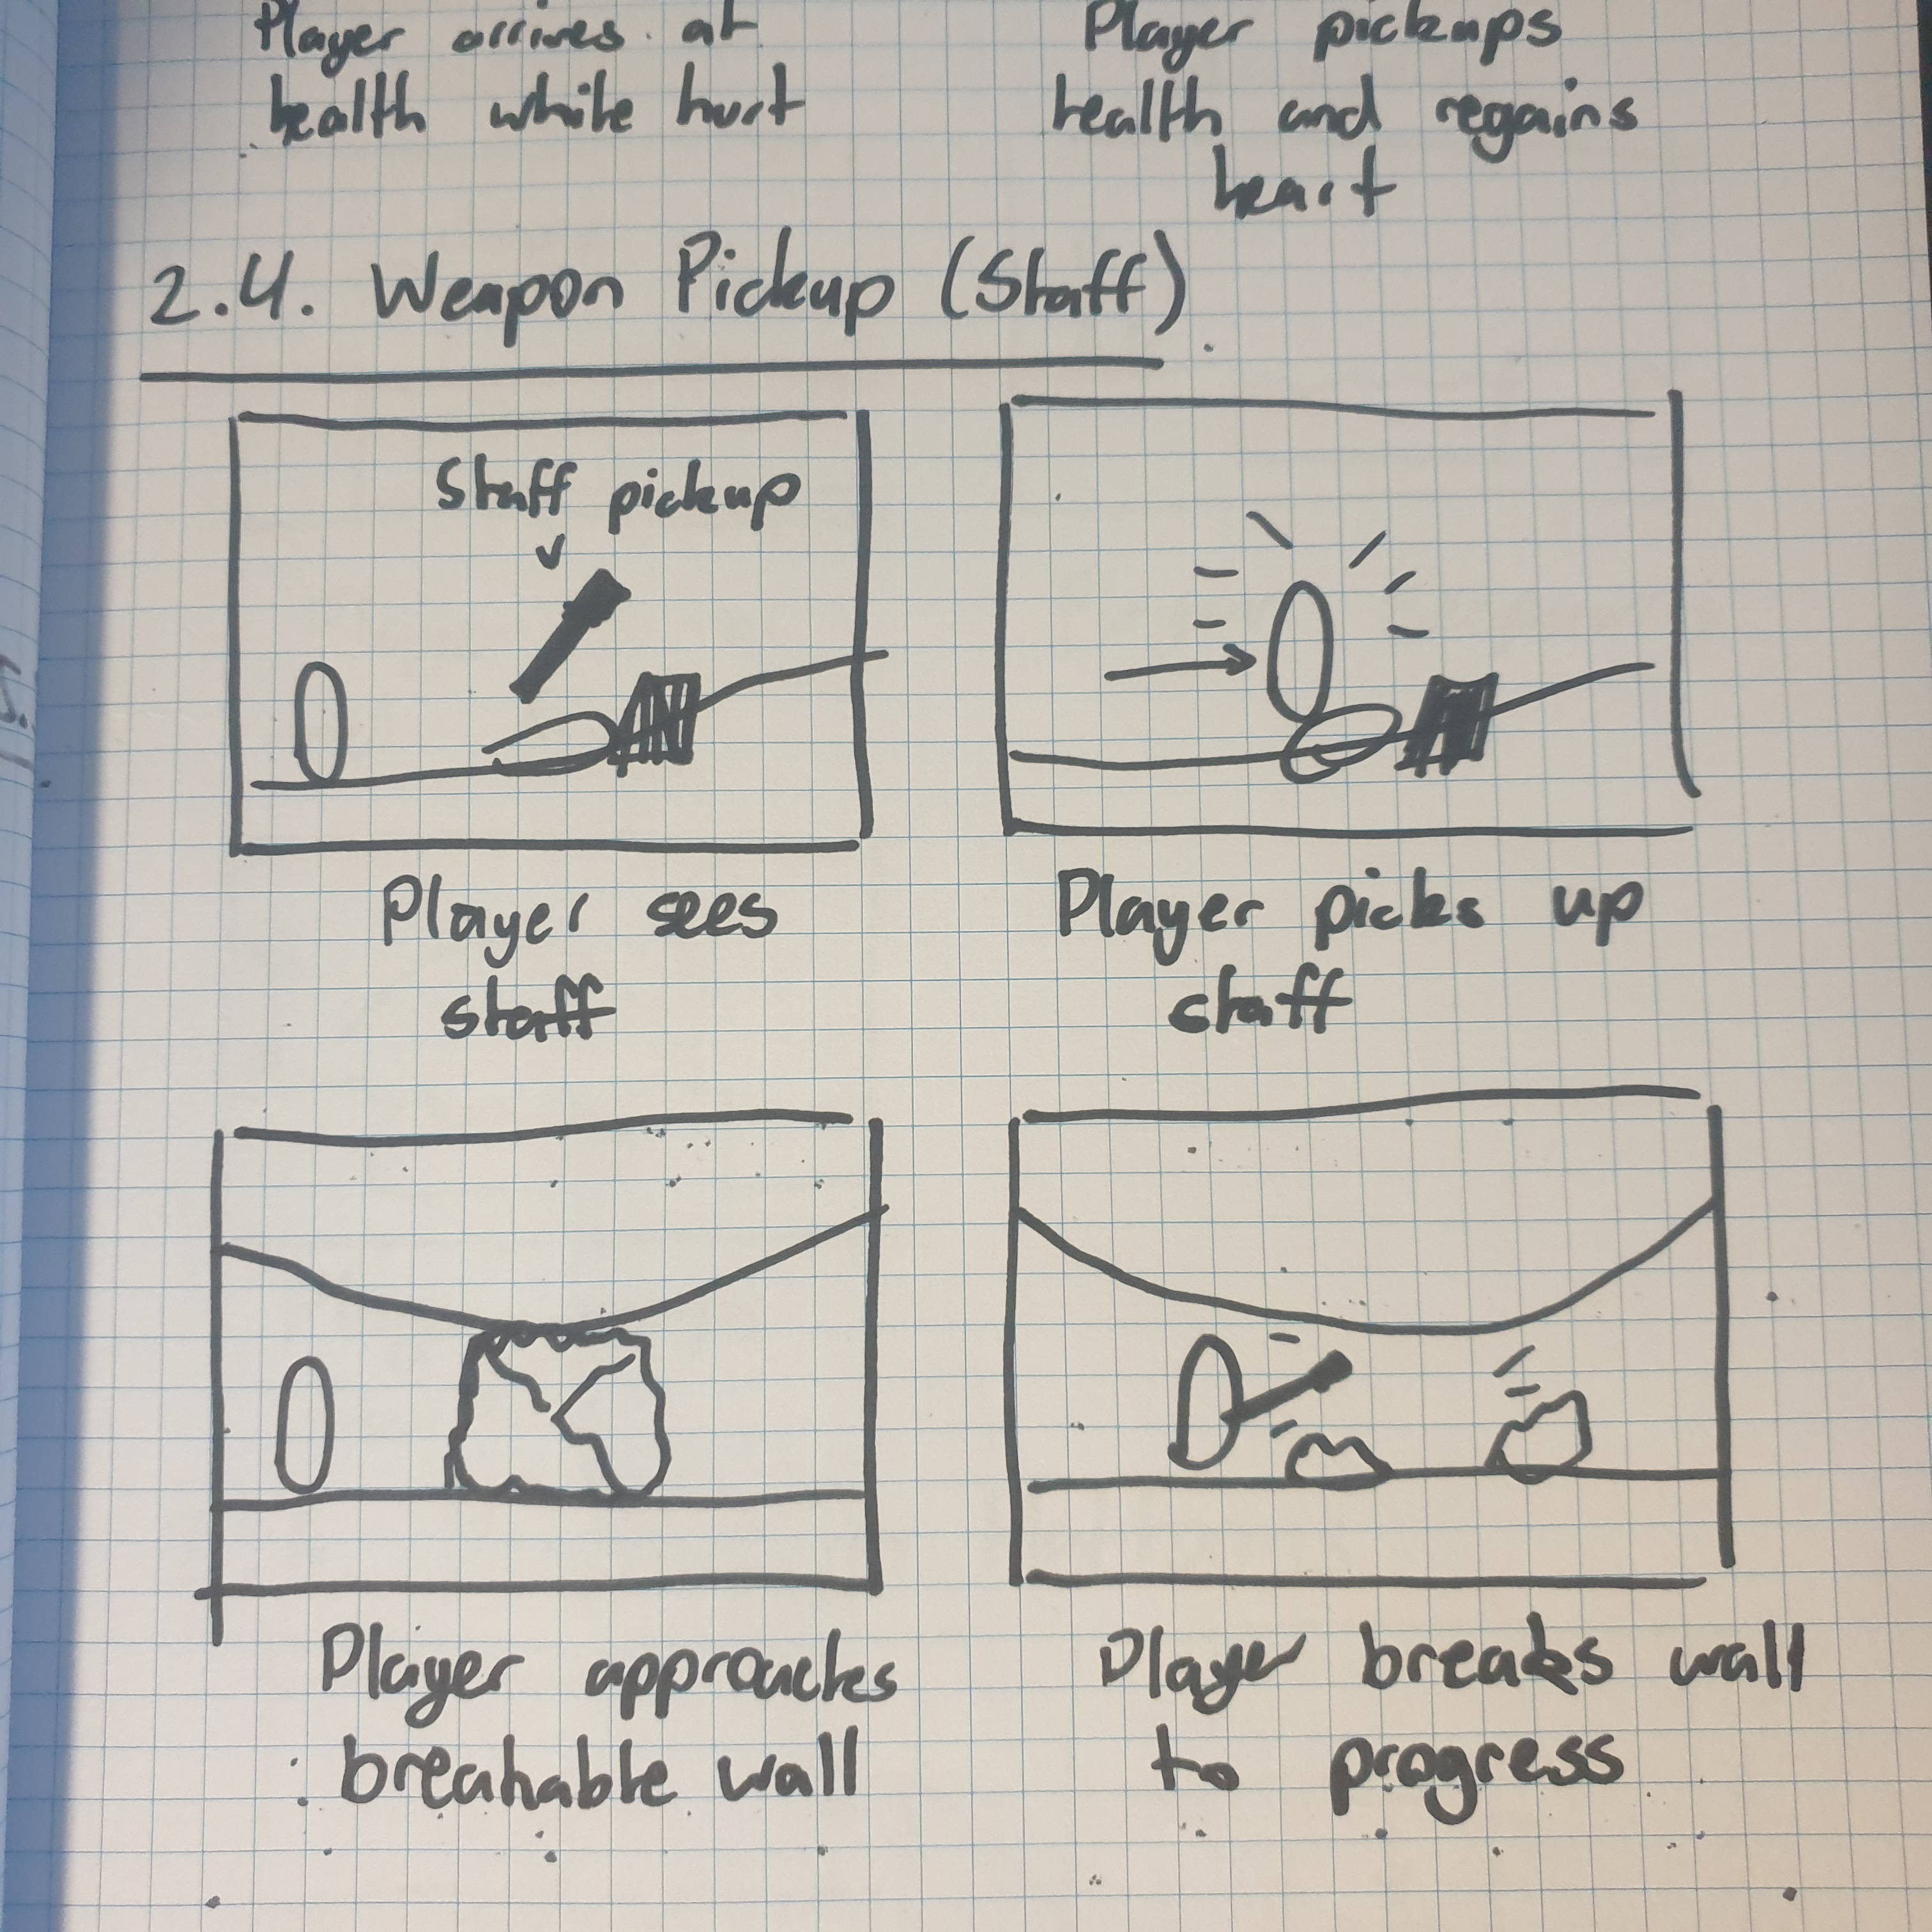 Player arrives at
health while hurt
Player pickups
health and regains
heart
2.4. Weapon Pickup (Staff)
Staff pickup
Player sees
staff
Player picks up
staff
Player approaches
breakable wall
Player breaks wall
to progress